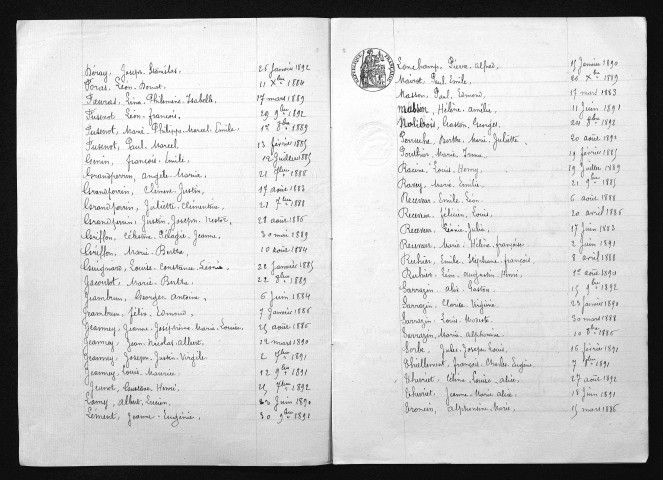 Joseph Stanislas. 26 Janvier 1892
Léon Donat. 11 Xbre 1884
Fauras, Léna Philomène Isabelle 17 mars 1889
Fusenot, Léon, François, 29 9bre 1892
Fusenot, Marie Philippe Marcel Emile. 1er 8bre 1889
Fusenot, Paul, Marcel 13 février 1885
Genin, François Emile. 12 Juillet 1885
Grandperrin, Angèle Maria. 21 1886
Grandperrin, Clément Justin, 17 août 1883
Grandperrin, Juliette Clémentine. 21 1888
Grandperrin, Justin, Joseph, Nestor. 28 août 1886
Griffon, Célestine Pélagie, Jeanne. 30 mai 1889
Griffon, Marie Berthe, 10 août 1884
Guignard, Louise Constance Léonie. 22 Janvier 1885
Jacontot, Marie Berthe. 22 8bre 1889
Jeambrun, Georges Antoine. 6 Juin 1884
Jeambrun, Félix, Edmond. 7 Janvier 1886
Jeanney, Jeanne Joséphine Marie Louise 25 août 1886
Jeanney, Jean Nicolas Albert. 22 mars 1890
Jeanney, Joseph, Justin Virgile 2 1891
Jeanney, Louis Maurice. 12 9bre 1891
Jeunot, Gustave Henri, 25 7bre 1892
Lamy, Albert, Lucien. Juin 189
Lément, Jeanne Eugénie. 30 9bre 1892
Lonchamp, Pierre Alfred. 15 Janvier 1890
Mairot, Paul, Emile. 26 Xbre 1889
Masson, Paul, Edmond, 17 mars 1883
Masson, Hélène Amélie, 11 Juin 1891
Nolibois, Gaston, Georges, 24 8bre 1892
Perruche, Berthe Marie Juliette. 20 août 1892
Pouthier, Marie, Irma. 19 février 1885
Racine, Louis, Henry. 19 Juillet 1889
Ravey, Marie Emilie 21 9bre 1885
Receveur, Emile, Léon. 6 août 1888
Receveur, Félicien, Louis. 20 avril 1886
Receveur, Léonie Julie. 17 Juin 1883
Receveur, Marie Hélène Françoise 2 Juin 1891
Rubier, Emile, Stéphane François. 8 avril 1888
Rubier, Léon Augustin Henri. 1er août 1890
Sarrazin, Alix Gaston. 15 9bre 1892
Sarrazin, Clarice Virginie. 23 Janvier 1890
Sarrazin, Louis Modeste. 30 mars 1888
Sarrazin, Marie Alphonsine. 10 8bre 1886
Sorbe, Jules Joseph Louis. 16 février 1891
Thiellement, François Charles Eugène. 7 1891
Theuriet, Célina Louise Alice. 27 août 1892
Theuriet, Jeanne Marie Alice. 18 Juin 1891
Troncin, Alphonsine Marie. 15 mars 1886